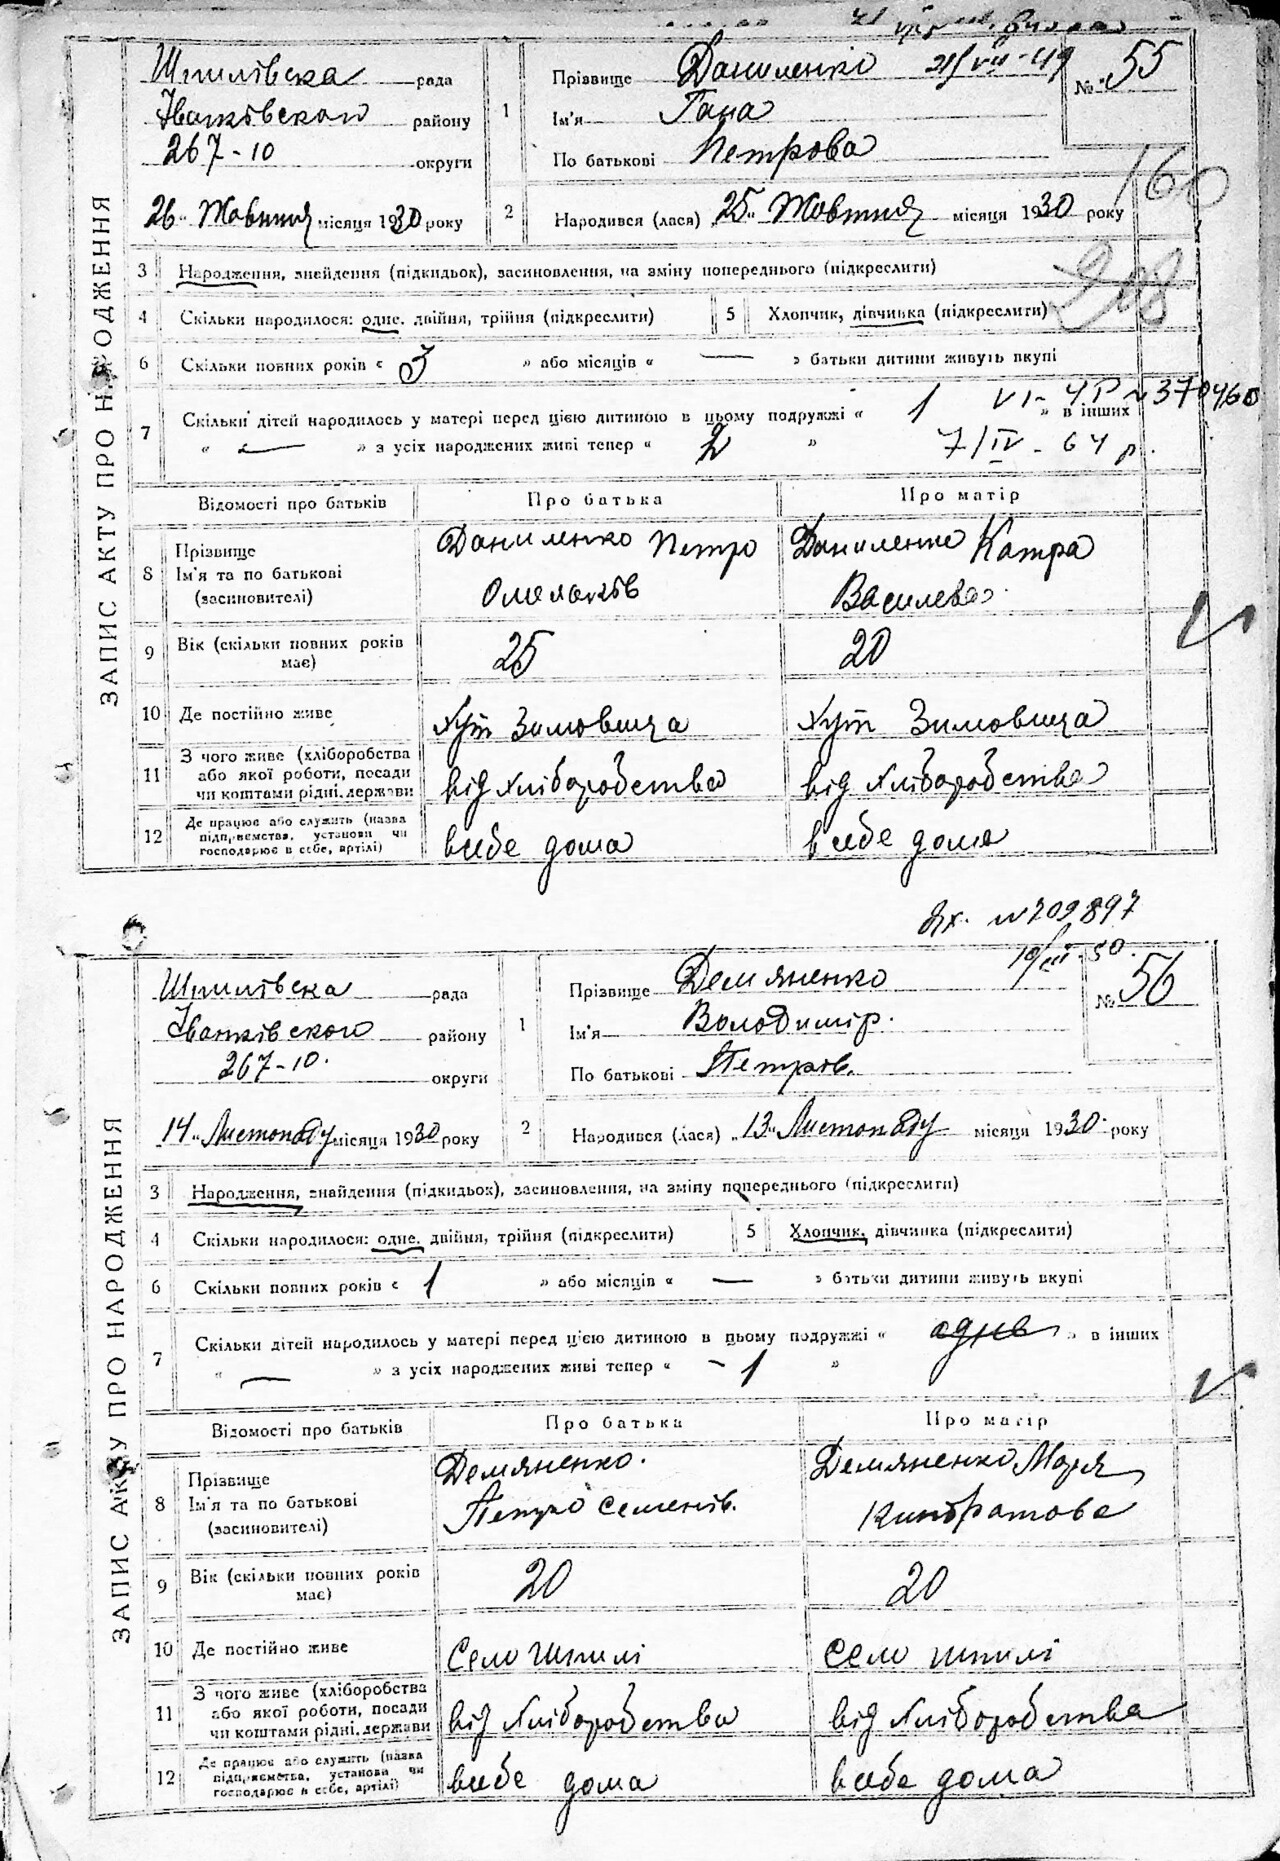 ЗАПИС АКТУ ПРО НАРОДЖЕННЯ
Шпилівська рада
Іванківського району
267-10 округи
26 „ Жовтня місяця 1930 року
1 Прізвище Даниленко 21/VII-49
Ім'я Гана
По батькові Петрова
№ 55
160
2 Народився (лася) „25„ Жовтня місяця 1930 року
208
3 Народження, знайдення (підкидьок), засиновлення, на зміну попереднього (підкреслити)
4 Скільки народилося: одне, двійня, трійня (підкреслити) 5 Хлопчик, дівчинка (підкреслити)
6 Скільки повних років « 3 » або місяців « — » батьки дитини живуть вкупі
7 Скільки дітей народилось у матері перед цією дитиною в цьому подружжі « 1 » в інших
« — » з усіх народжених живі тепер « 2 »
№ 370460
7/IV - 64 р.
Відомості про батьків Про батька Про матір
8 Прізвище Ім'я та по батькові (засиновителі)
Даниленко Петро
Омельків
Даниленко Катра
Василева
9 Вік (скільки повних років має) 25 20
10 Де постійно живе Хут Зимовища Хут Зимовища
11 З чого живе (хліборобства або якої роботи, посади чи коштами рідні, держави від хліборобства від хліборобства
12 Де працює або служить (назва підприємства, установи чи господарює в себе, артілі) всебе дома всебе дома
№ 709897
19/III-50
ЗАПИС АКТУ ПРО НАРОДЖЕННЯ
Шпилівська рада
Іванківського району
267-10. округи
14 „ Листопаду місяця 1930 року
1 Прізвище Демяненко
Ім'я Володимір.
По батькові Петрів.
№ 56
2 Народився (лася) „13„ Листопаду місяця 1930 року
3 Народження, знайдення (підкидьок), засиновлення, на зміну попереднього (підкреслити)
4 Скільки народилося: одне, двійня, трійня (підкреслити) 5 Хлопчик, дівчинка (підкреслити)
6 Скільки повних років « 1 » або місяців « — » батьки дитини живуть вкупі
7 Скільки дітей народилось у матері перед цією дитиною в цьому подружжі « » в інших
« — » з усіх народжених живі тепер « - 1 »
Відомості про батьків Про батька Про матір
8 Прізвище Ім'я та по батькові (засиновителі)
Демяненко.
Петро Семенів.
Демяненко Марія
Кіндратова
9 Вік (скільки повних років має) 20 20
10 Де постійно живе Село Шпилі Село Шпилі
11 З чого живе (хліборобства або якої роботи, посади чи коштами рідні, держави від хліборобства від хліборобства
12 Де працює або служить (назва підприємства, установи чи господарює в себе, артілі) всебе дома всебе дома